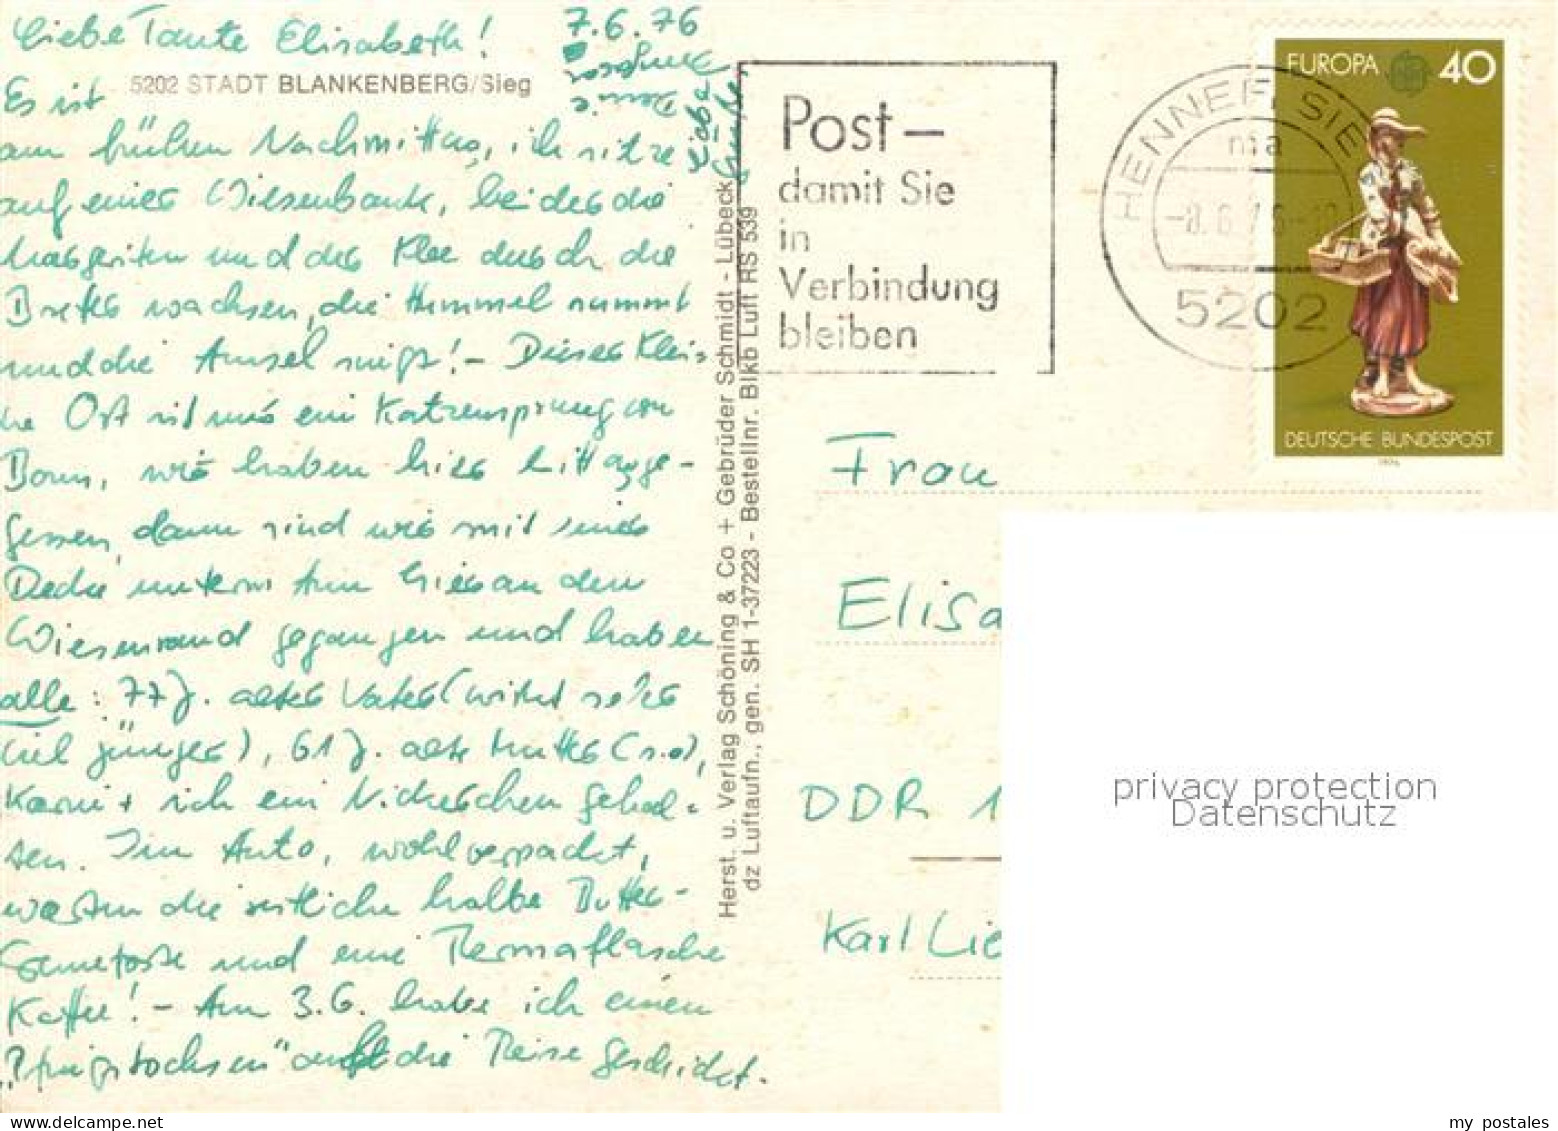 Liebe Tante Elisabeth!
7.6.76
5202 STADT BLANKENBERG/Sieg
Es ist
am frühen Nachmittag, ich sitze
auf einer Wiesenbank, bei der die
Margeriten und der Klee durch die
Bretter wachsen, die Hummel summt
und die Amsel singt! – Dieser klei-
ne Ort ist nur ein Katzensprung von
Bonn, wir haben hier Mittagge-
gessen, dann sind wir mit einer
Decke unterm Arm hier an den
Wiesenrand gegangen und haben
alle: 77 J. alter Vater (wirkt sehr
viel jünger), 61 J. alte Mutter (s.o.),
Karin + ich ein Nickerchen gehal-
ten. Im Auto, wohlverpackt,
warten die restliche halbe Butter-
Cremetorte und eine Thermosflasche
Kaffee! – Am 3.6. habe ich einen
„Pfingstochsen" auf die Reise geschickt.
Liebe Grüße
Herst. u. Verlag Schöning & Co + Gebrüder Schmidt - Lübeck
dz Luftaufn., gen. SH 1-37223 - Bestellnr. Blkb Luft RS 539
Post –
damit Sie
in
Verbindung
bleiben
HENNEF, SIE
ma
-8.6.76-10
5202
EUROPA 40
DEUTSCHE BUNDESPOST
1976
Frau
Elisa
DDR 1
Karl Lie
privacy protection
Datenschutz
my postales